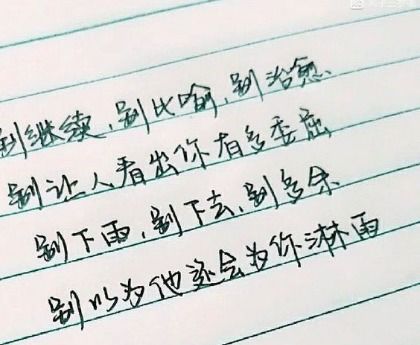 别继续,别比喻,别治愈
别让人看出你有多委屈
别下雨,别下去,别多余
别以为他还会为你淋雨